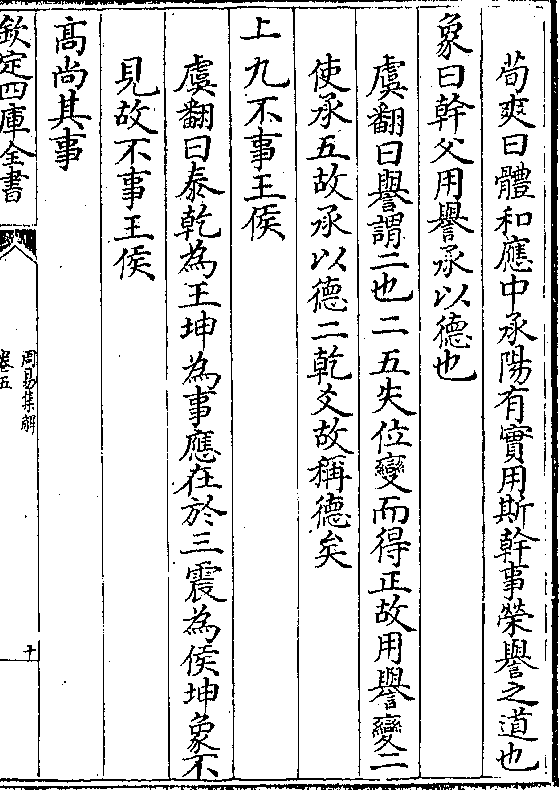 荀爽曰體和應中承陽有實用斯幹事榮譽之道也
象曰幹父用譽承以德也
虞翻曰譽謂二也二五失位變而得正故用譽變二
使承五故承以德二乾爻故稱德矣
上九不事王侯
虞翻曰泰乾為王坤為事應在於三震為侯坤象不
見故不事王侯
髙尚其事
欽定四庫全書
周易集解
卷五
十